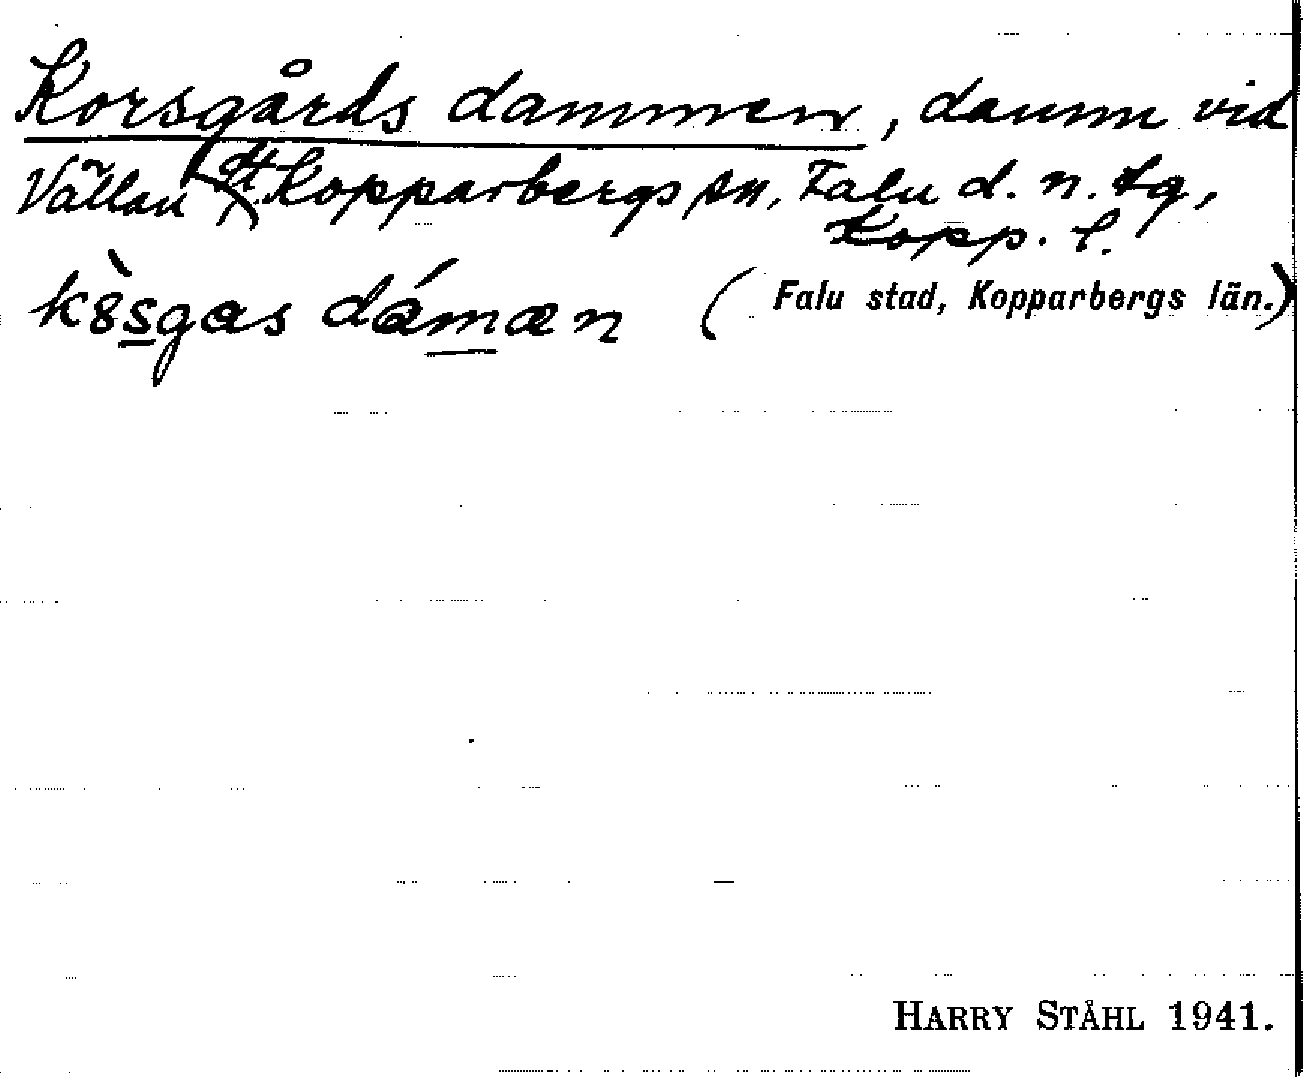 Korsgårds dammen, damm vid
Vällan St. Kopparbergs sn, Falu d. n. tg,
Kopp. l.
kòsgas dámæn (Falu stad, Kopparbergs län.)
HARRY STÅHL 1941.